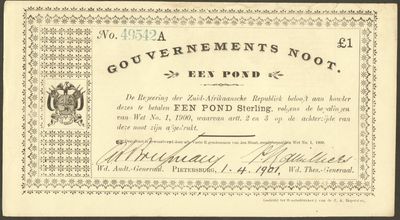 No. 49542A
£1
GOUVERNEMENTS NOOT.
EEN POND
De Regeering der Zuid-Afrikaansche Republiek belooft aan houder
dezes te betalen EEN POND Sterling, volgens de bepalingen
van Wet No. 1, 1900, waarvan artt. 2 en 3 op de achterzijde van
deze noot zijn afgedrukt.
Wet No. 1, 1900.
Wd. Audt.-Generaal. PIETERSBURG, 1.4.1901, Wd. Thes.-Generaal.